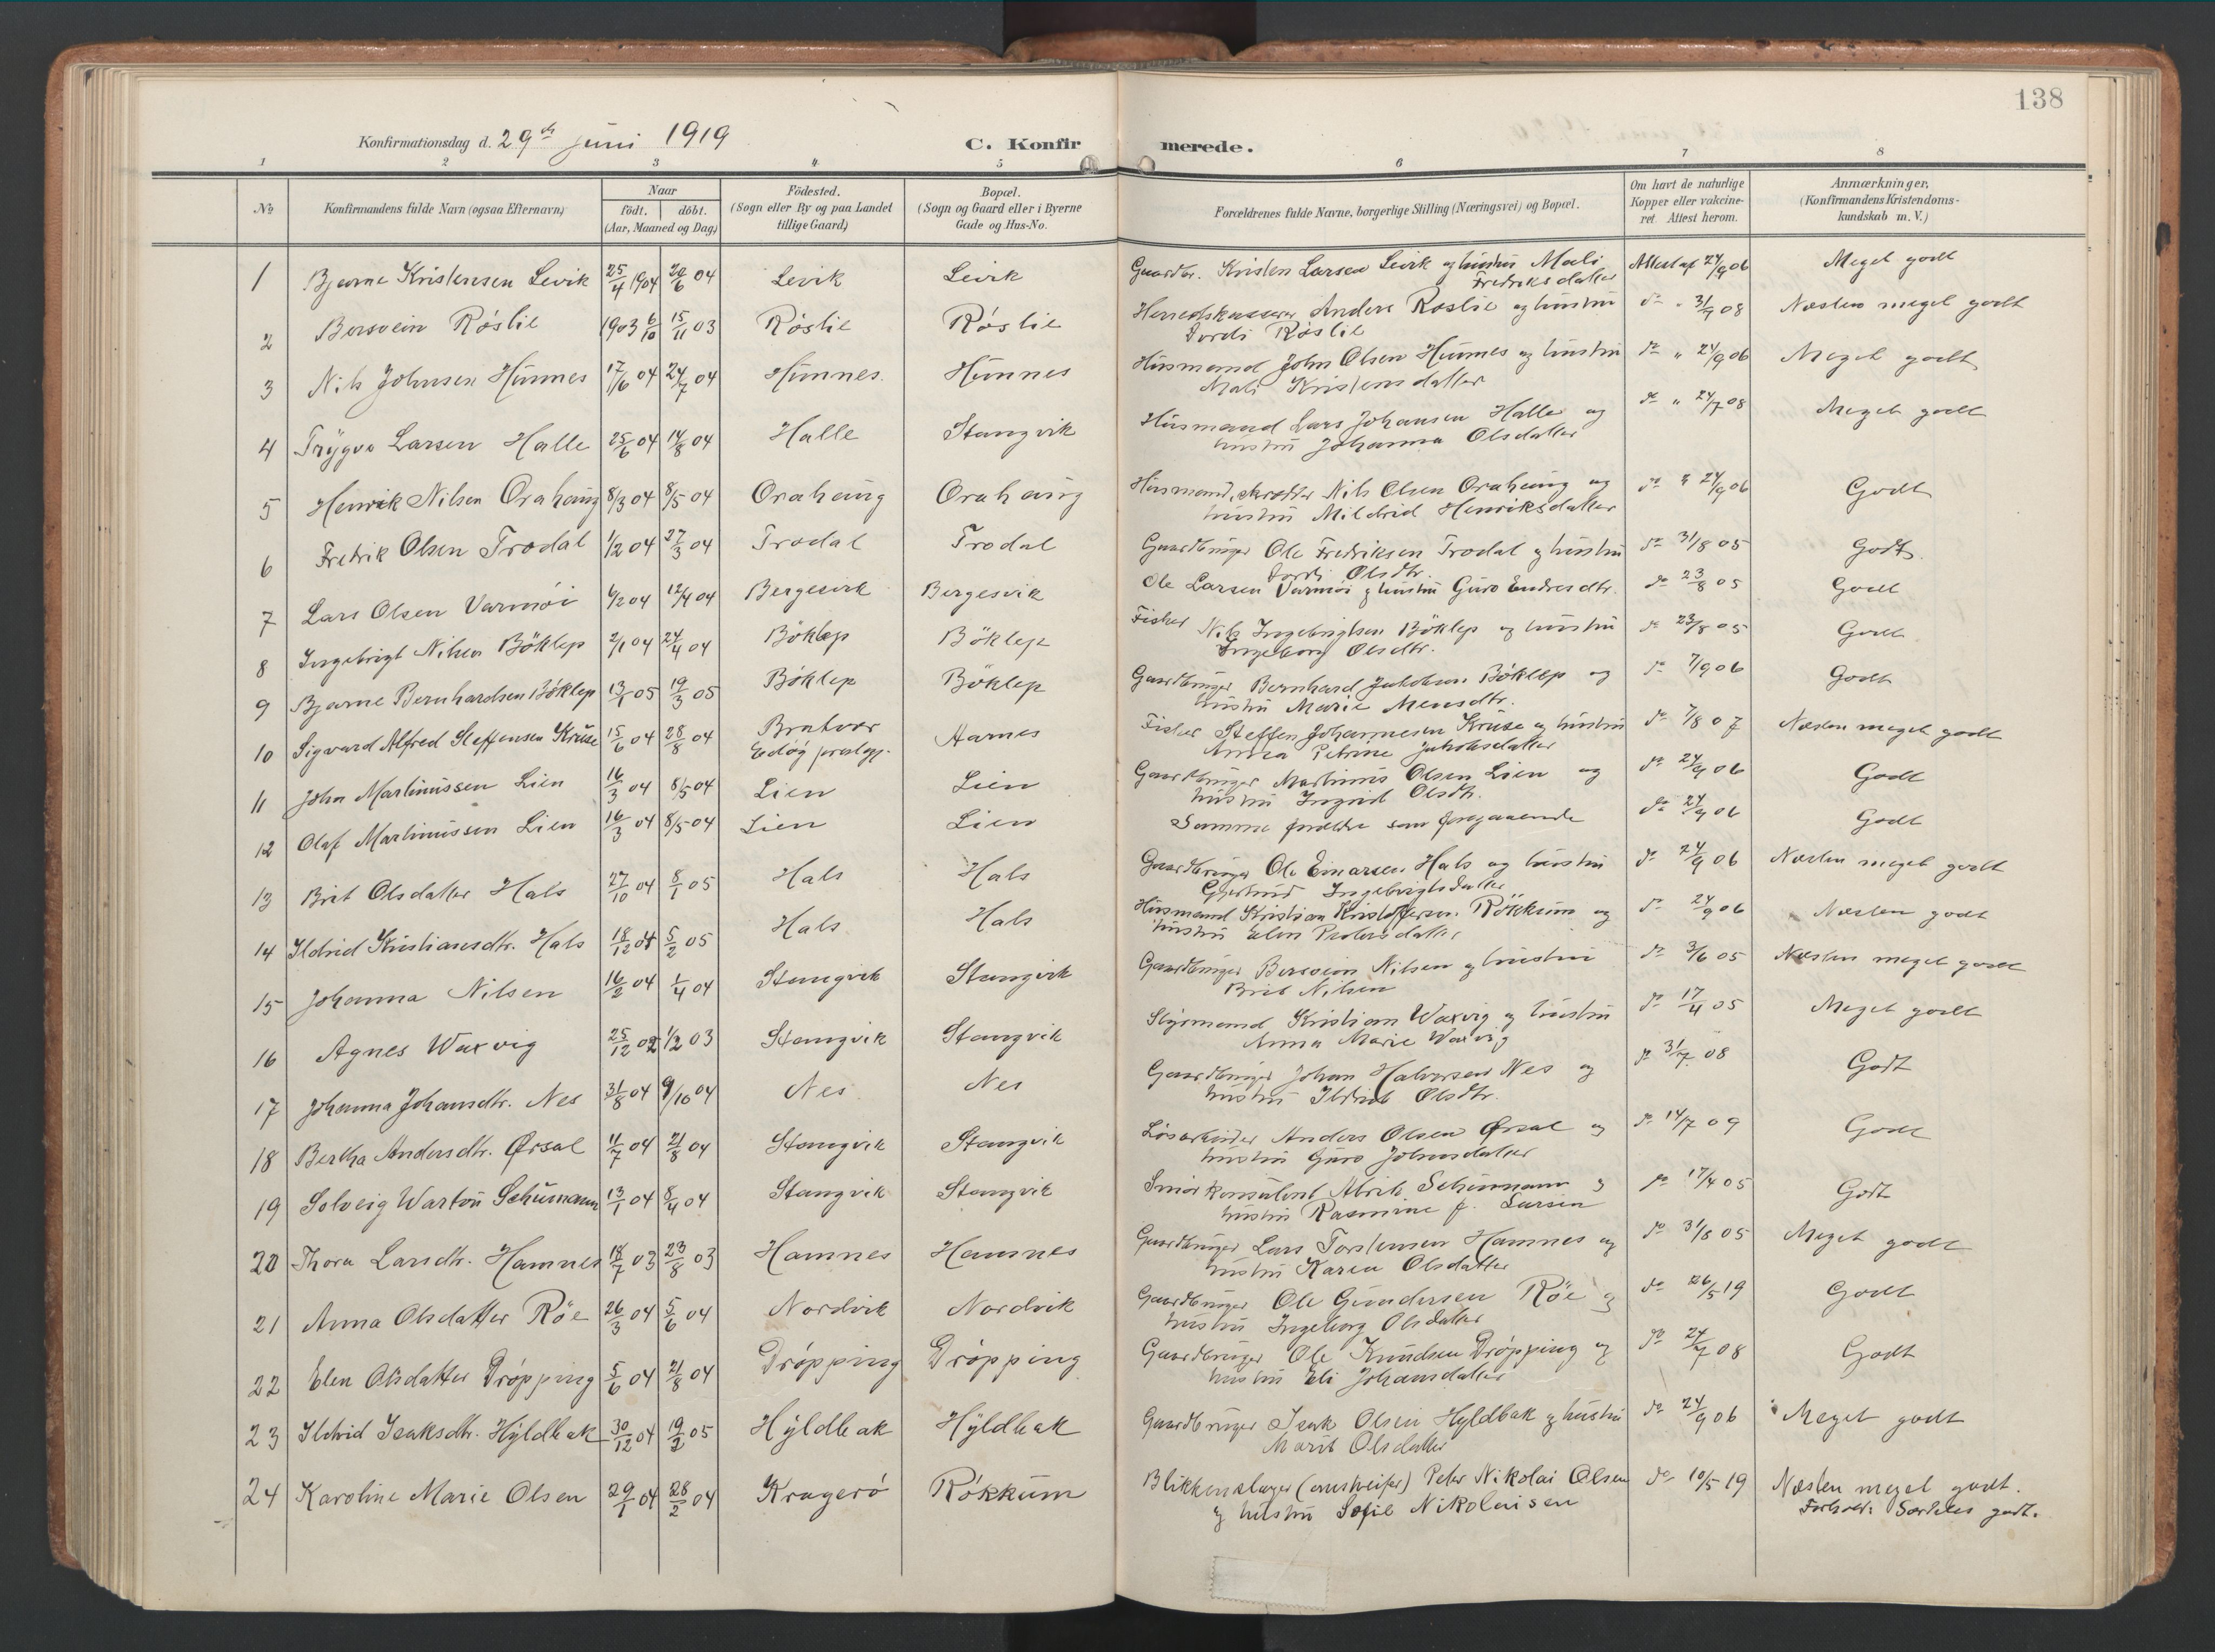 138
Konfirmationsdag d. 29de juni 1919
C. Konfirmerede.
1 2 3 4 5 6 7 8
No Konfirmandens fulde Navn (ogsaa Efternavn) Naar födt. döbt. (Aar, Maaned og Dag) Födested. (Sogn eller By og paa Landet tillige Gaard) Bopæl. (Sogn og Gaard eller i Byerne Gade og Hus-No. Forældrenes fulde Navne, borgerlige Stilling (Næringsvei) og Bopæl. Om havt de naturlige Kopper eller vakcineret Attest herom. Anmærkninger, (Konfirmandens Kristendomskundskab m. V.)
1 Bjarne Kristensen Levik 25/4 1904 26/6 04 Levik Levik Gaardbr. Kristen Larsen Levik og hustru Mali Fredriksdatter Attest af 24/9 06 Meget godt
2 Bersvein Røslie 1903 6/10 15/11 03 Røslie Røslie Herredskasserer Anders Røslie og hustru Gordi Røslie do " 31/7 08 Næsten meget godt
3 Nils Johnsen Hünnes 17/6 04 24/7 04 Hünnes Hünnes Hüsmand John Olsen Hünnes og hustru Mali Kristensdatter do " 24/9 06 Meget godt
4 Trygve Larsen Halle 25/6 04 14/8 04 Halle Stangvik Hüsmand Lars Johansen Halle og hustru Johanna Olsdatter do " 24/7 08 Meget godt
5 Henrik Nilsen Orahaug 8/3 04 8/5 04 Orahaug Orahaug Hüsmand, skrædder Nils Olsen Orahaug og hustru Mildrid Henriksdatter do " 24/9 06 Godt
6 Fredrik Olsen Trodal 1/2 04 27/3 04 Trodal Trodal Gaardbruger Ole Fredriksen Trodal og hustru Gordi Olsdtr. do 31/8 05 Godt
7 Lars Olsen Varmøi 6/2 04 12/4 04 Bergesvik Bergesvik Ole Larsen Varmøi og hustru Guro Endresdtr. do 23/8 05 Godt
8 Ingebrigt Nilsen Böklep 2/1 04 24/4 04 Böklep Böklep Fisker Nils Ingebrigtsen Böklep og hustru Ingeborg Olsdtr. do 23/8 05 Godt
9 Bjarne Bernhardsen Böklep 13/1 05 19/3 05 Böklep Böklep Gaardbruger Bernhard Jakobsen Böklep og hustru Marie Monsdtr. do 7/9 06 Godt
10 Sigvard Alfred Steffensen Krüse 15/6 04 28/8 04 Bratvær Edöy prestegj. Aarnes Fisker Steffen Johannesen Krüse og hustru Andrea Petrine Jakobsdatter do 7/8 07 Næsten meget godt
11 John Martinüssen Lien 16/3 04 8/5 04 Lien Lien Gaardbruger Martinus Olsen Lien og hustru Ingrid Olsdtr. do 24/9 06 Godt
12 Olaf Martinüssen Lien 16/3 04 8/5 04 Lien Lien Samme forældre som foregaaende do 24/9 06 Godt
13 Brit Olsdatter Hals 27/10 04 8/1 05 Hals Hals Gaardbruger Ole Einarsen Hals og hustru Gjertrud Ingebrigtsdatter do 24/9 06 Næsten meget godt
14 Ildrid Kristiansdtr. Hals 18/12 04 5/2 05 Hals Hals Hüsmand Kristian Kristoffersen Røkkum og hustru Elen Pedersdatter do 24/9 06 Næsten godt
15 Johanna Nilsen 16/2 04 1/4 04 Stangvik Stangvik Gaardbruger Bersvein Nilsen og hustru Brit Nilsen do 3/6 05 Næsten meget godt
16 Agnes Waxvig 25/12 02 1/2 03 Stangvik Stangvik Styrmand Kristian Waxvig og hustru Anna Marie Waxvig do 17/4 05 Meget godt
17 Johanna Johansdtr. Nes 31/8 04 9/10 04 Nes Nes Gaardbruger Johan Halvorsen Nes og hustru Ildrid Olsdtr. do 31/7 08 Godt
18 Bertha Andersdtr. Ørsal 11/7 04 21/8 04 Stangvik Stangvik Løsarbeider Anders Olsen Ørsal og hustru Guro Johnsdatter do 14/7 09 Godt
19 Solveig Wartou Schümann 13/1 04 8/4 04 Stangvik Stangvik Smörkonsulent Alrik Schümann og hustru Rasmine f. Larsen do 17/4 05 Godt
20 Thora Larsdtr. Hamnes 18/7 03 23/8 03 Hamnes Hamnes Gaardbruger Lars Torstensen Hamnes og hustru Karen Olsdatter do 31/8 05 Meget godt
21 Anna Olsdatter Röe 26/3 04 5/6 04 Nordvik Nordvik Gaardbruger Ole Gundersen Röe og hustru Ingeborg Olsdatter do 26/5 19 Godt
22 Elen Olsdatter Drøpping 5/6 04 21/8 04 Drøpping Drøpping Gaardbruger Ole Knudsen Drøpping og hustru Eli Johansdatter do 24/7 08 Godt
23 Ildrid Isaksdtr. Hyldbak 30/12 04 19/2 05 Hyldbak Hyldbak Gaardbruger Isak Olsen Hyldbak og hustru Marit Olsdatter do 24/9 06 Meget godt
24 Karoline Marie Olsen 29/1 04 28/2 04 Kragerø Røkkum Blikkenslager (omstreifer) Peter Nikolai Olsen og hustru Sofie Nikolaisen do 10/5 19 Næsten meget godt. Forhold: Særdeles godt.